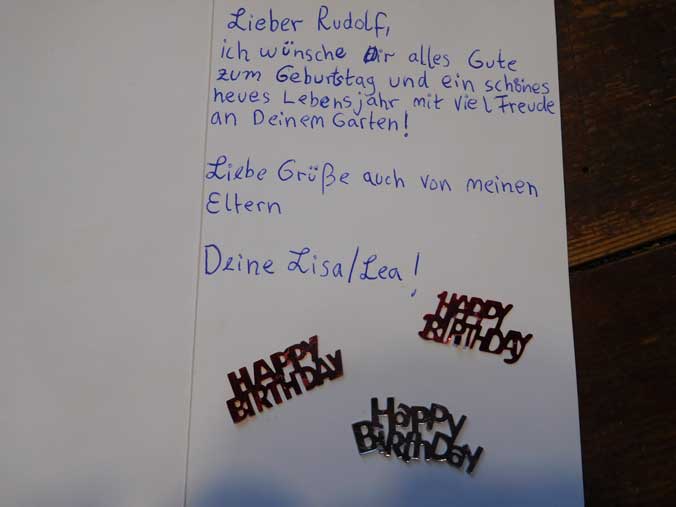 Lieber Rudolf,
ich wünsche Dir alles Gute
zum Geburtstag und ein schönes
neues Lebensjahr mit viel Freude
an Deinem Garten!
Liebe Grüße auch von meinen
Eltern
Deine Lisa/Lea!
HAPPY
BIRTHDAY
HAPPY
BIRTHDAY
HaPPy
BirthDay